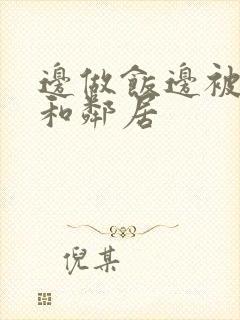 邊做飯邊被
和鄰居
倪某